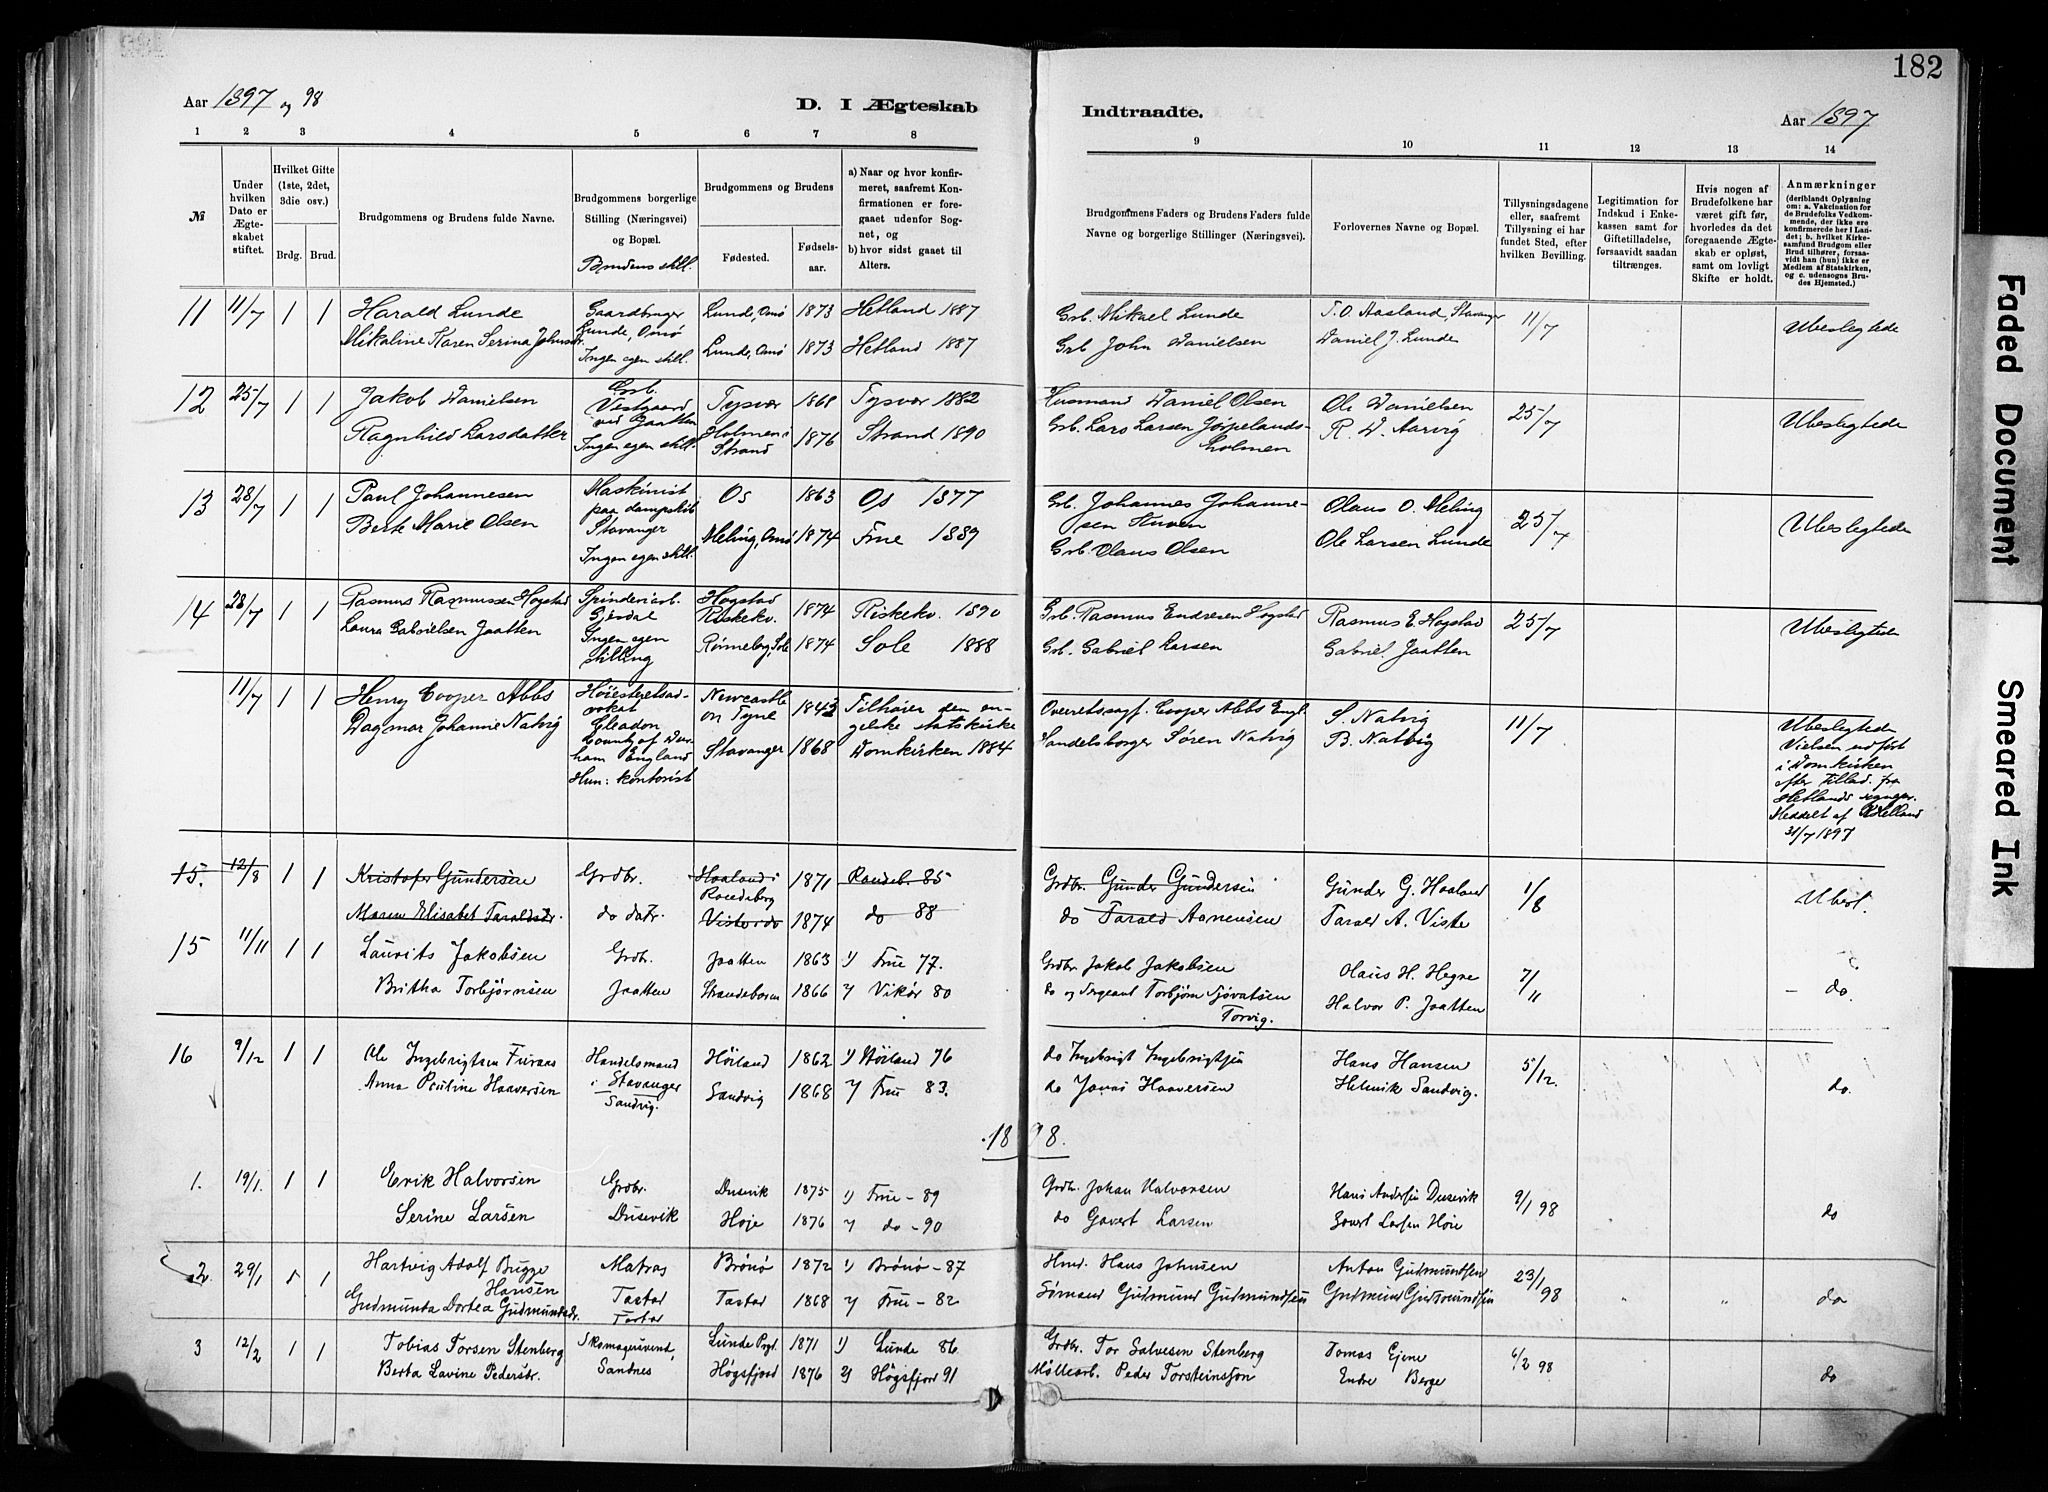 182
Aar 1897 og 98
D. I Ægteskab
Indtraadte.
Aar 1897
1 2 3 4 5 6 7 8
9 10 11 12 13 14
№
Under hvilken Dato er Ægteskabet stiftet.
Hvilket Gifte (1ste, 2det, 3die osv.)
Brdg. Brud.
Brudgommens og Brudens fulde Navne.
Brudgommens borgerlige Stilling (Næringsvei) og Bopæl.
Brudens still.
Brudgommens og Brudens
Fødested.
Fødselsaar.
a) Naar og hvor konfirmeret, saafremt Konfirmationen er foregaaet udenfor Sognet, og
b) hvor sidst gaaet til Alters.
Brudgommens Faders og Brudens Faders fulde Navne og borgerlige Stillinger (Næringsvei).
Forlovernes Navne og Bopæl.
Tillysningsdagene eller, saafremt Tillysning ei har fundet Sted, efter hvilken Bevilling.
Legitimation for Indskud i Enkekassen samt for Giftetilladelse, forsaavidt saadan tiltrænges.
Hvis nogen af Brudefolkene har været gift før, hvorledes da det foregaaende Ægteskab er opløst, samt om lovligt Skifte er holdt.
Anmærkninger
(deriblandt Oplysning om: a. Vakcination for de Brudefolks Vedkommende, der ikke ere konfirmerede her i Landet; b. hvilket Kirkesamfund Brudgom eller Brud tilhører, forsaavidt han (hun) ikke er Medlem af Statskirken, og c. udensogns Brudes Hjemsted.)
11 11/7 1 1 Harald Lunde Gaardbruger Lunde, Omø 1873 Hetland 1887 Grb. Mikael Lunde T. O. Aasland, Stavanger 11/7 Ubeslegtede
Mikaline Karen Serina Johnsdr. Lunde, Omø Ingen egen still. Lunde, Omø 1873 Hetland 1887 Grb. John Danielsen Daniel J. Lunde
12 25/7 1 1 Jakob Danielsen Grb. Vestgaard ved Jaatten Tysvær 1868 Tysvær 1882 Husmand Daniel Olsen Ole Danielsen 25/7 Ubeslegtede
Ragnhild Larsdatter Ingen egen still. Holmen i Strand 1876 Strand 1890 Grb. Lars Larsen Jøpelandsholmen R. D. Aarvig
13 28/7 1 1 Paul Johannesen Maskinist paa dampskib Stavanger Os 1863 Os 1877 Grb. Johannes Johannesen Olaus O. Meling 25/7 Ubeslegtede
Berte Marie Olsen Ingen egen still. Meling, Omø 1874 Frue 1889 Grb. Olaus Olsen Ole Larsen Lunde
14 28/7 1 1 Rasmus Rasmussen Hogstad Spinderiarb. Gjesdal Hogstad Riskekv. 1874 Riskekv. 1890 Grb. Rasmus Endresen Hogstad Rasmus E Hogstad 25/7 Ubeslegtede
Laura Gabrielsen Jaatten Ingen egen stilling Rønneberg, Sole 1874 Sole 1888 Grb. Gabriel Larsen Gabriel Jaatten
11/7 1 1 Henry Cooper Abbs Høiesteretsadvokat Cleadon County of Durham England Newcastle on Tyne 1843 Tilhører den engelske statskirke Overretssagf. Cooper Abbs Engl. S. Natvig 11/7 Ubeslegtede
Dagmar Johanne Natvig Hun: kontorist Stavanger 1868 Domkirken 1884 Handelsborger Søren Natvig B. Natvig
Vielsen udført
i Domkirken
efter Tillad. fra
Hetlands sognepr.
Meddelt af Kielland
31/7 1897
15. 12/8 1 1 Kristofer Gundersen Grdbr. Haaland i Randeberg 1871 Randeb. 85 Grdbr. Gunder Gundersen Gunder G. Haaland 1/8 Ubesl.
Maren Elisabet Taraldsdr. do datr. Viste i do 1874 do 88 do Tarald Asmensen Tarald A. Viste
15 11/11 1 1 Laurits Jakobsen Grdbr. Jaatten 1863 1) Frue 77. Grdbr. Jakob Jakobsen Olaus H. Hegre 7/11 do.
Britha Torbjørnsen Jaatten Strandebarm 1866 2) Vikør 80 do og Sergeant Torbjørn Sjøvatsen Torvig. Halvor P. Jaatten
16 9/12 1 1 Ole Ingebrigtsen Furaas Handelsmand i Stavanger Høiland 1862 1) Høiland 76 do Ingebrigt Ingebrigtsen Hans Hansen 5/12. do.
Anna Pauline Haaversen Sandvig. Sandvig 1868 2) Frue 83. do Jonas Haaversen Helmik Sandvig.
1898.
1. 19/1. 1 1 Erik Halvorsen Grdbr. Dusevik 1875 1) Frue – 89 Grdbr. Johan Halvorsen Hans Andersen Dusevik 9/1 98 do
Serine Larsen Dusevik Høje 1876 2) do – 90 do Govert Larsen Govert Larsen Høie
2. 29/1 1 Hartvig Adolf Bugge Hansen Matros Brønø 1872 1) Brønø – 87 Hmd. Hans Johnsen Anton Gudmundsen 23/1 98 " " do
Gudmunda Dortea Gudmundsdr. Tastad Tastad Tastad 1868 2) Frue – 82 Sømand Gudmund Gudmundsen Gudmund Gudmundsen
3 12/2 1 1 Tobias Torsen Stenberg Skomagersvend, Lunde Prgt. 1871 1) Lunde 86. Grdbr. Tor Salvesen Stenberg Tomas Ejene 6/2 98 do
Berta Lavine Pedersdr. Sandnes Høgsfjord 1876 2) Høgsfjord 91 Møllearb. Peder Torsteinsson Endre Berge
Faded Document
Smeared Ink